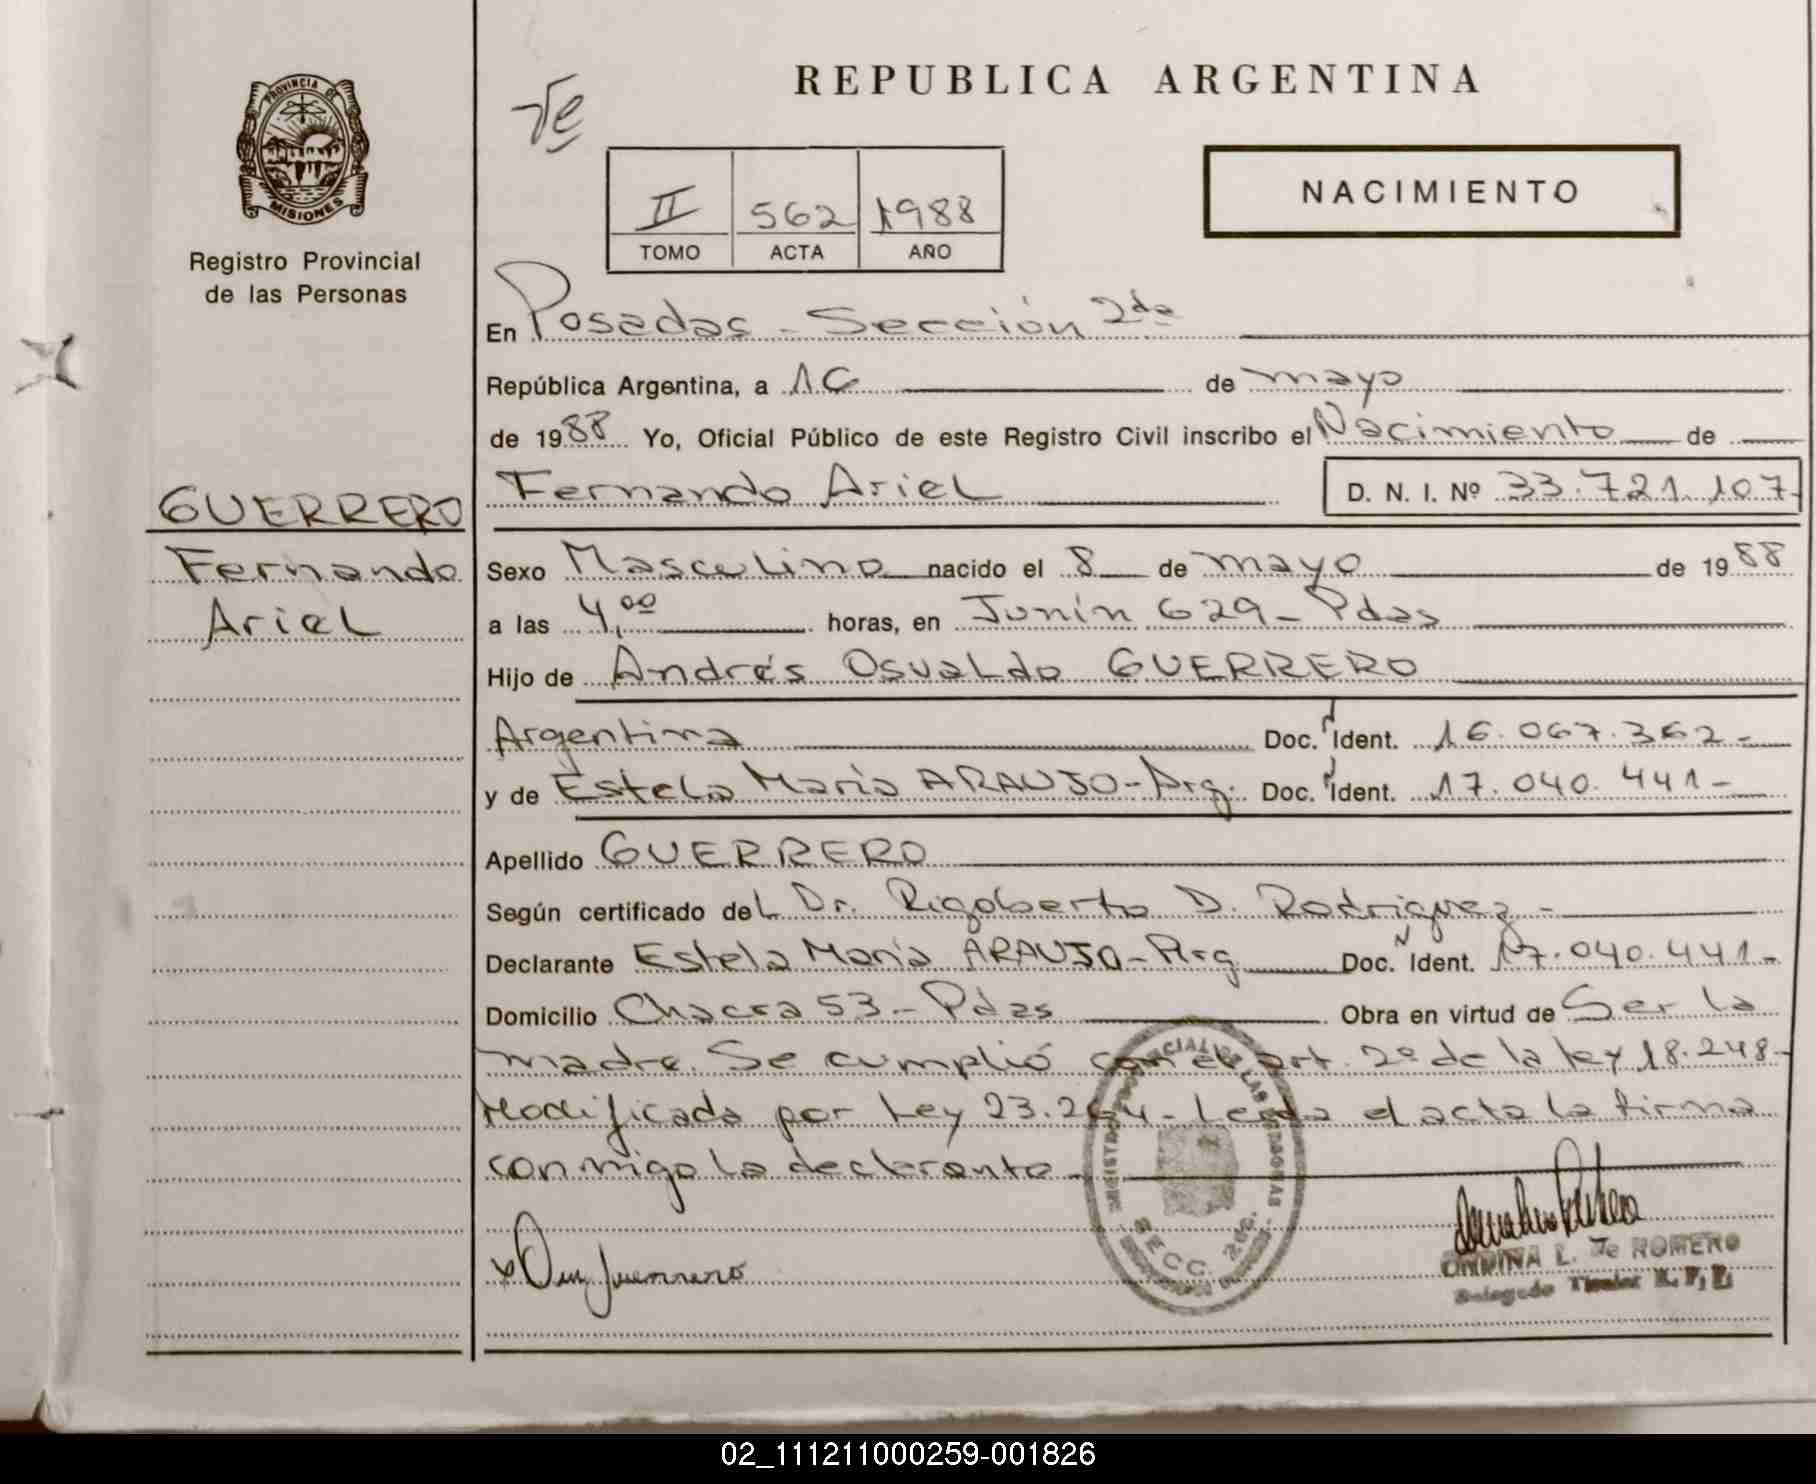 REPUBLICA ARGENTINA
PROVINCIA DE
MISIONES
Registro Provincial
de las Personas
II 562 1988
TOMO ACTA AÑO
NACIMIENTO
En Posadas - Sección 2da
República Argentina, a 16 de mayo
de 1988 Yo, Oficial Público de este Registro Civil inscribo el Nacimiento de
GUERRERO
Fernando Ariel D. N. I. Nº 33.721.107-
Fernando
Ariel
Sexo Masculino nacido el 8 de mayo de 1988
a las 4,00 horas, en Junín 629 - Pdas
Hijo de Andrés Osvaldo GUERRERO
Argentina Doc. Ident. 16.067.362-
y de Estela María ARAUJO - Arg. Doc. Ident. 17.040.441-
Apellido GUERRERO
Según certificado del Dr. Rigoberto D. Rodriguez -
Declarante Estela María ARAUJO - Arg Doc. Ident. 17.040.441-
Domicilio Chacra 53 - Pdas Obra en virtud de Ser la
madre. Se cumplió con el art. 2º de la ley 18.248-
Modificada por Ley 23.264 - Leída el acta la firma
conmigo la declarante -
SECC. 2da.
L. de ROMERO
Delegado Titular R. P. P.
02_111211000259-001826